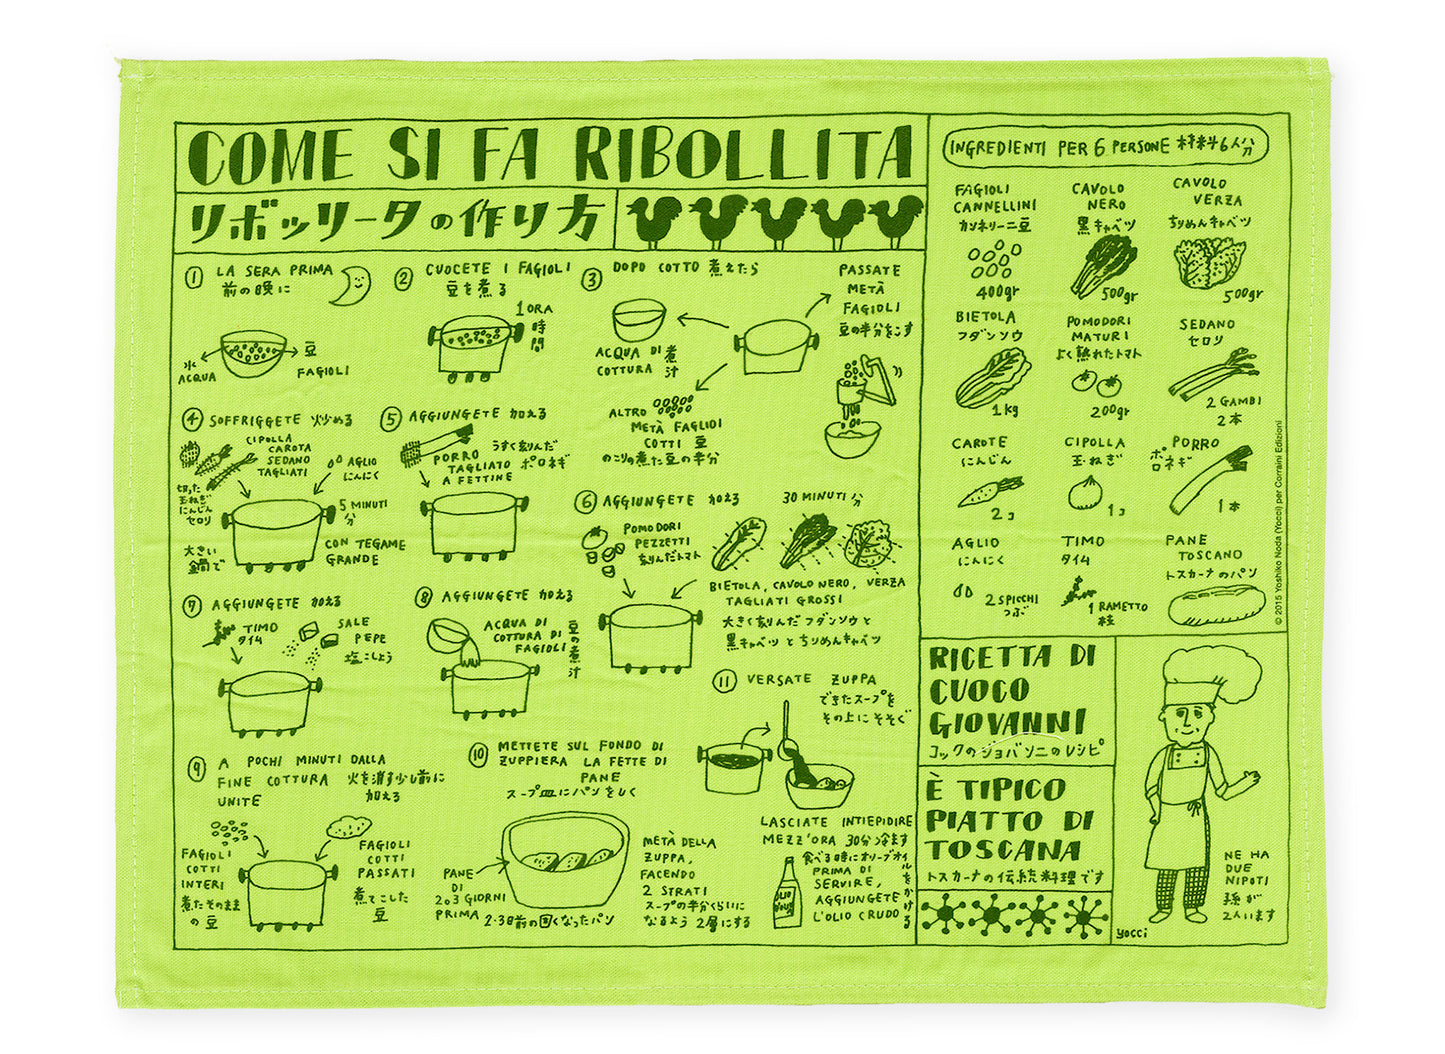 COME SI FA RIBOLLITA
リボッリータの作り方
① LA SERA PRIMA
前の晩に
水
ACQUA
豆
FAGIOLI
② CUOCETE I FAGIOLI
豆を煮る
1 ORA
時間
③ DOPO COTTO 煮えたら
ACQUA DI
COTTURA
煮汁
PASSATE
METÀ
FAGIOLI
豆の半分をこす
ALTRO
METÀ FAGLIOI
COTTI 豆
のこりの煮た豆の半分
④ SOFFRIGGETE 炒める
CIPOLLA
CAROTA
SEDANO
TAGLIATI
切った
玉ねぎ
にんじん
セロリ
AGLIO
にんにく
5 MINUTI
分
大きい
鍋で
CON TEGAME
GRANDE
⑤ AGGIUNGETE 加える
PORRO
TAGLIATO
A FETTINE
うすく刻んだ
ポロネギ
⑥ AGGIUNGETE 加える
30 MINUTI 分
POMODORI
PEZZETTI
刻んだトマト
BIETOLA, CAVOLO NERO, VERZA
TAGLIATI GROSSI
大きく刻んだフダンソウと
黒キャベツとちりめんキャベツ
⑦ AGGIUNGETE 加える
TIMO
タイム
SALE
PEPE
塩こしょう
⑧ AGGIUNGETE 加える
ACQUA DI
COTTURA DI
FAGIOLI
豆の煮汁
⑨ A POCHI MINUTI DALLA
FINE COTTURA 火を消す少し前に
UNITE 加える
FAGIOLI
COTTI
INTERI
煮たそのまま
の豆
FAGIOLI
COTTI
PASSATI
煮てこした
豆
⑩ METTETE SUL FONDO DI
ZUPPIERA LA FETTE DI
PANE
スープ皿にパンをしく
PANE
DI
2o3 GIORNI
PRIMA
2-3日前の固くなったパン
METÀ DELLA
ZUPPA,
FACENDO
2 STRATI
スープの半分くらいに
なるよう 2層にする
⑪ VERSATE ZUPPA
できたスープを
その上にそそぐ
LASCIATE INTIEPIDIRE
MEZZ'ORA 30分冷ます
食べる時にオリーブオイルをかける
PRIMA DI
SERVIRE,
AGGIUNGETE
L'OLIO CRUDO
OLIO
INGREDIENTI PER 6 PERSONE 材料6人分
FAGIOLI
CANNELLINI
カンネリーニ豆
400gr
CAVOLO
NERO
黒キャベツ
500gr
CAVOLO
VERZA
ちりめんキャベツ
500gr
BIETOLA
フダンソウ
1kg
POMODORI
MATURI
よく熟れたトマト
200gr
SEDANO
セロリ
2 GAMBI
2本
CAROTE
にんじん
2コ
CIPOLLA
玉ねぎ
1コ
PORRO
ポロネギ
1本
AGLIO
にんにく
2 SPICCHI
つぶ
TIMO
タイム
1 RAMETTO
枝
PANE
TOSCANO
トスカーナのパン
© 2015 Yoshiko Noda (Yocci) per Corraini Edizioni
RICETTA DI
CUOCO
GIOVANNI
コックのジョバンニのレシピ
È TIPICO
PIATTO DI
TOSCANA
トスカーナの伝統料理です
NE HA
DUE
NIPOTI
孫が
2人います
yocci